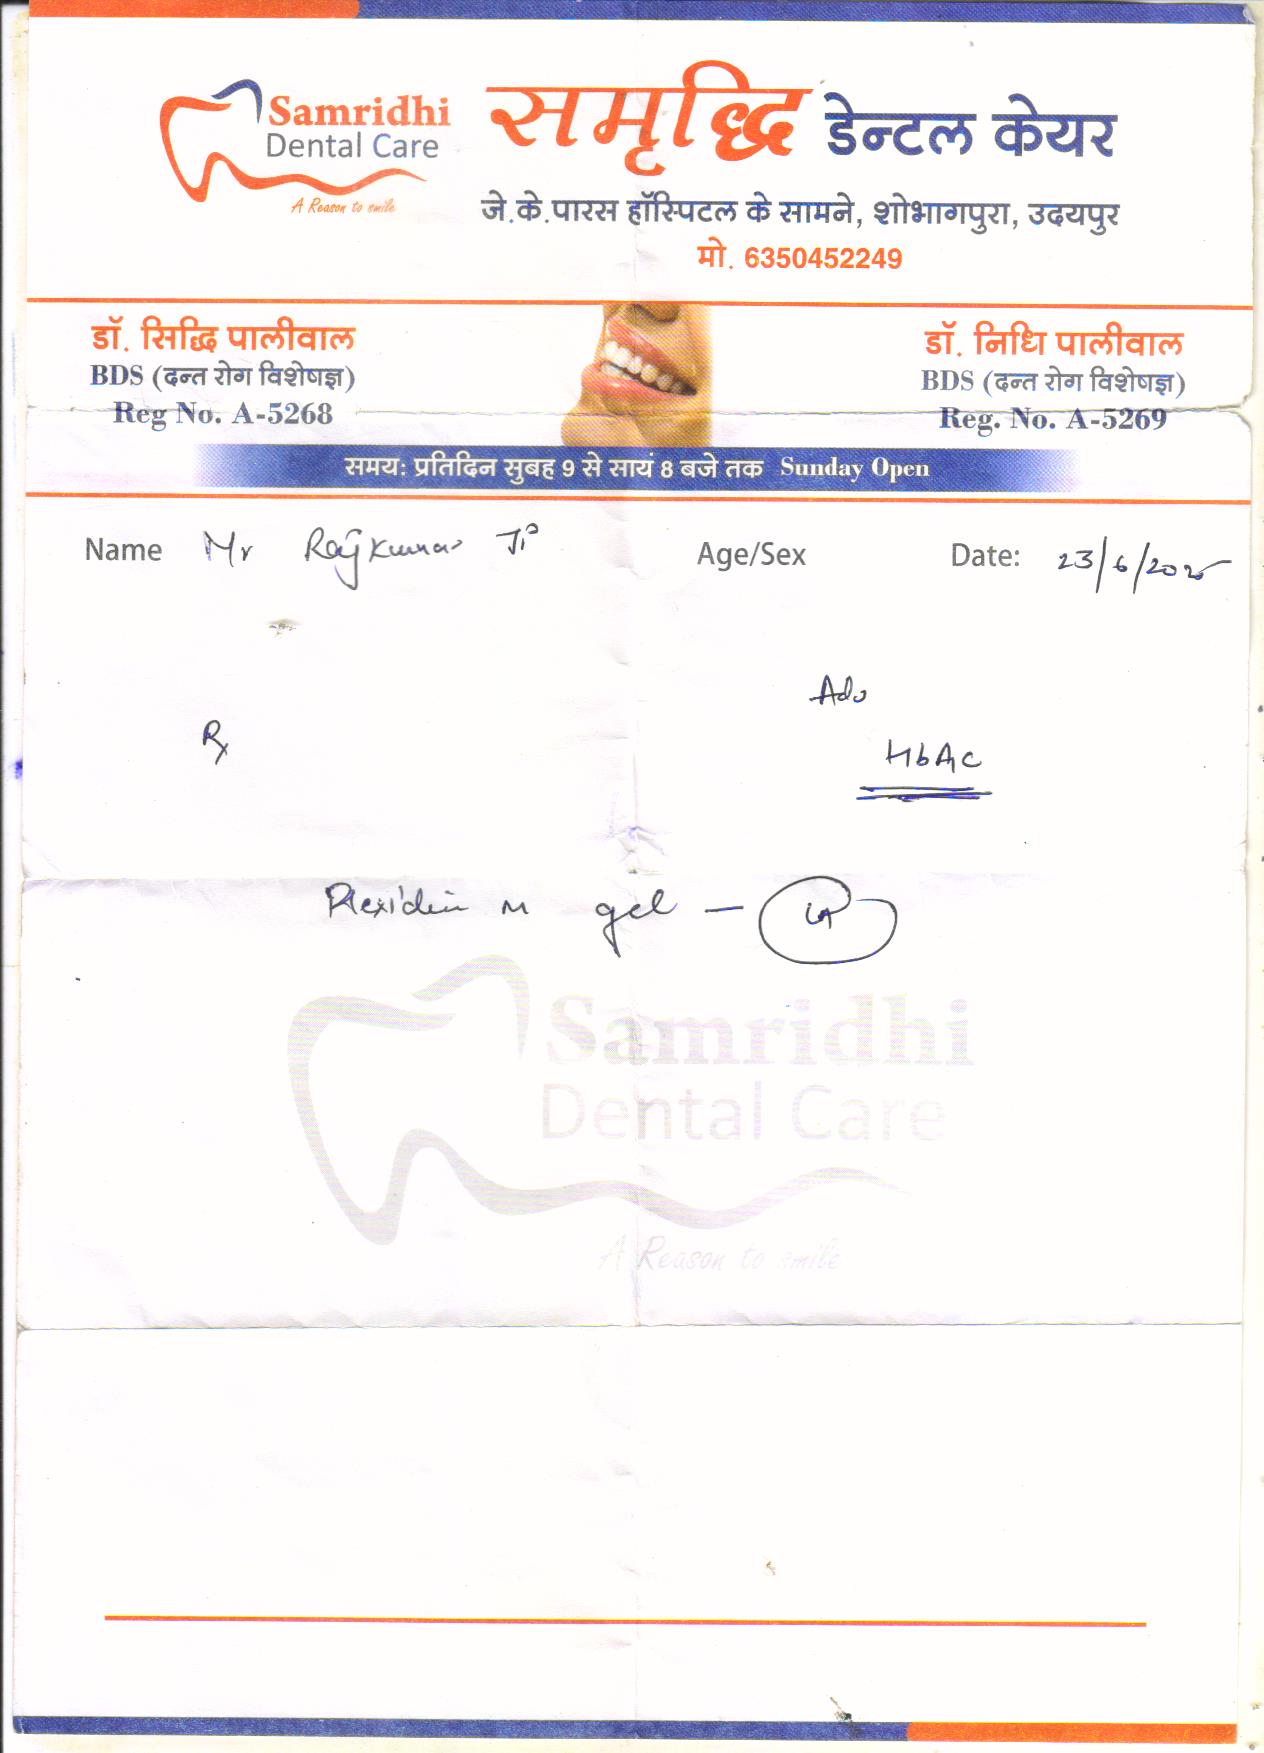 Samridhi
Dental Care
A Reason to smile
समृद्धि डेन्टल केयर
जे.के.पारस हॉस्पिटल के सामने, शोभागपुरा, उदयपुर
मो. 6350452249
डॉ. सिद्धि पालीवाल
BDS (दन्त रोग विशेषज्ञ)
Reg No. A-5268
डॉ. निधि पालीवाल
BDS (दन्त रोग विशेषज्ञ)
Reg. No. A-5269
समय: प्रतिदिन सुबह 9 से सायं 8 बजे तक Sunday Open
Name Mr Rajkumar Ji Age/Sex Date: 23/6/2025
Adv
Rx
HbA1c
gel — LA
Samridhi
Dental Care
A Reason to smile